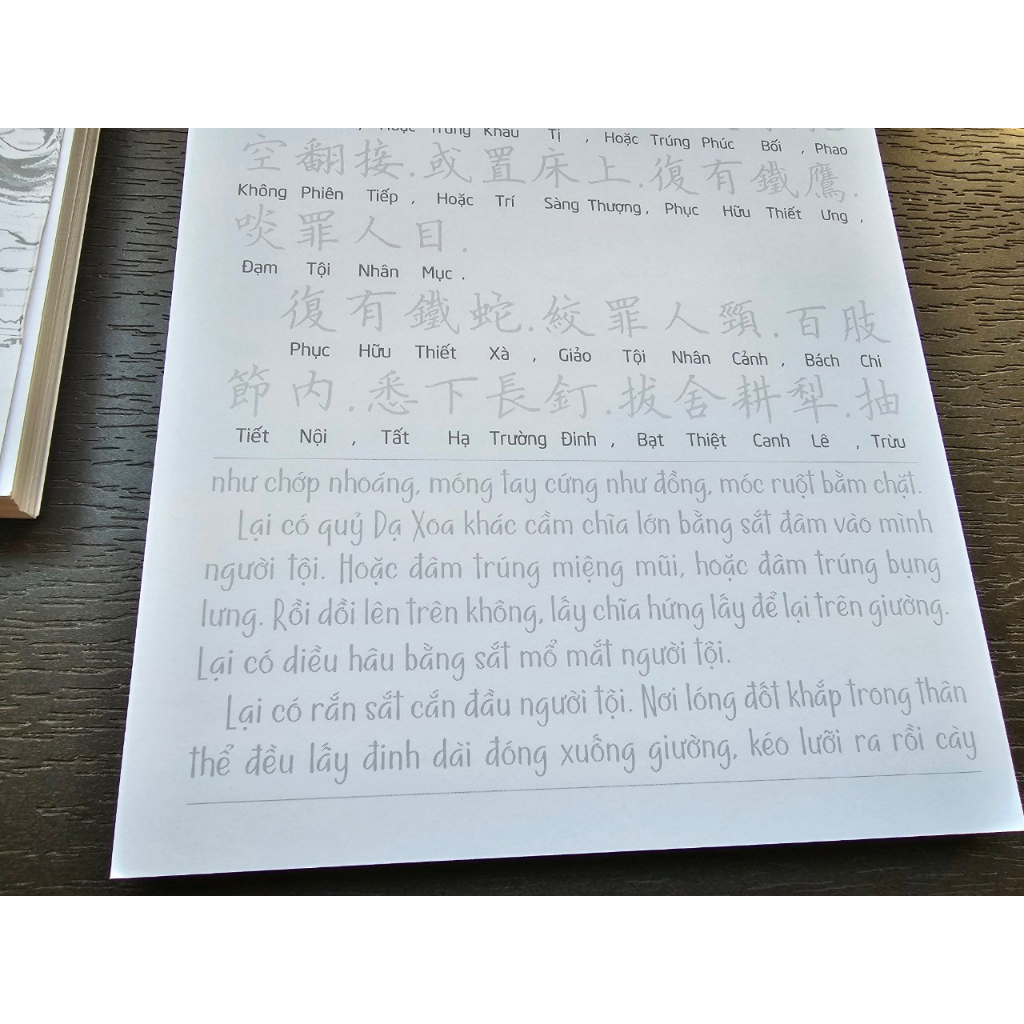 , Hoặc Trúng Khẩu Tị , Hoặc Trúng Phúc Bối , Phao
空翻接.或置床上.復有鐵鷹.
Không Phiên Tiếp , Hoặc Trí Sàng Thượng , Phục Hữu Thiết Ưng ,
啖罪人目.
Đạm Tội Nhân Mục .
復有鐵蛇.絞罪人頸.百肢
Phục Hữu Thiết Xà , Giảo Tội Nhân Cảnh , Bách Chi
節内.悉下長釘.拔舍耕犁.抽
Tiết Nội , Tất Hạ Trường Đinh , Bạt Thiệt Canh Lê , Trừu
như chớp nhoáng, móng tay cứng như đồng, móc ruột bằm chặt.
Lại có quỷ Dạ Xoa khác cầm chĩa lớn bằng sắt đâm vào mình
người tội. Hoặc đâm trúng miệng mũi, hoặc đâm trúng bụng
lưng. Rồi dồi lên trên không, lấy chĩa hứng lấy để lại trên giường.
Lại có diều hâu bằng sắt mổ mắt người tội.
Lại có rắn sắt cắn đầu người tội. Nơi lóng đốt khắp trong thân
thể đều lấy đinh dài đóng xuống giường, kéo lưỡi ra rồi cày